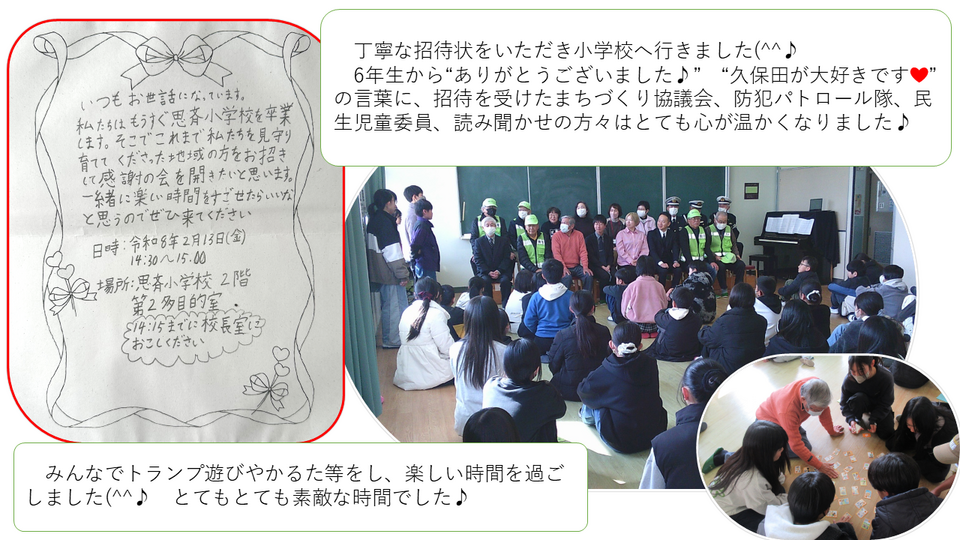 丁寧な招待状をいただき小学校へ行きました(^^♪
6年生から“ありがとうございました♪” “久保田が大好きです♥”
の言葉に、招待を受けたまちづくり協議会、防犯パトロール隊、民
生児童委員、読み聞かせの方々はとても心が温かくなりました♪
いつもお世話になっています。
私たちはもうすぐ思斉小学校を卒業
します。そこでこれまで私たちを見守り
育ててくださった地域の方をお招き
して感謝の会を開きたいと思います。
一緒に楽しい時間をすごせたらいいな
と思うのでぜひ来てください
日時:令和8年2月13日(金)
14:30～15:00
場所:思斉小学校 2階
第2多目的室
14:15までに校長室に
おこしください
みんなでトランプ遊びやかるた等をし、楽しい時間を過ご
しました(^^♪ とてもとても素敵な時間でした♪